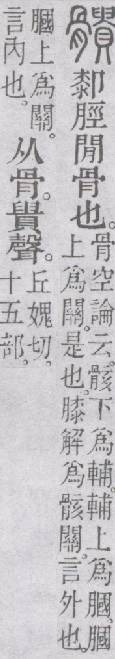 䯣厀脛閒骨也。骨空論云。骸下爲輔。輔上爲膕。膕上爲關。是也。膝解爲骸關。言外也。
膕上爲關。言内也。从骨。貴聲。丘媿切。十五部。